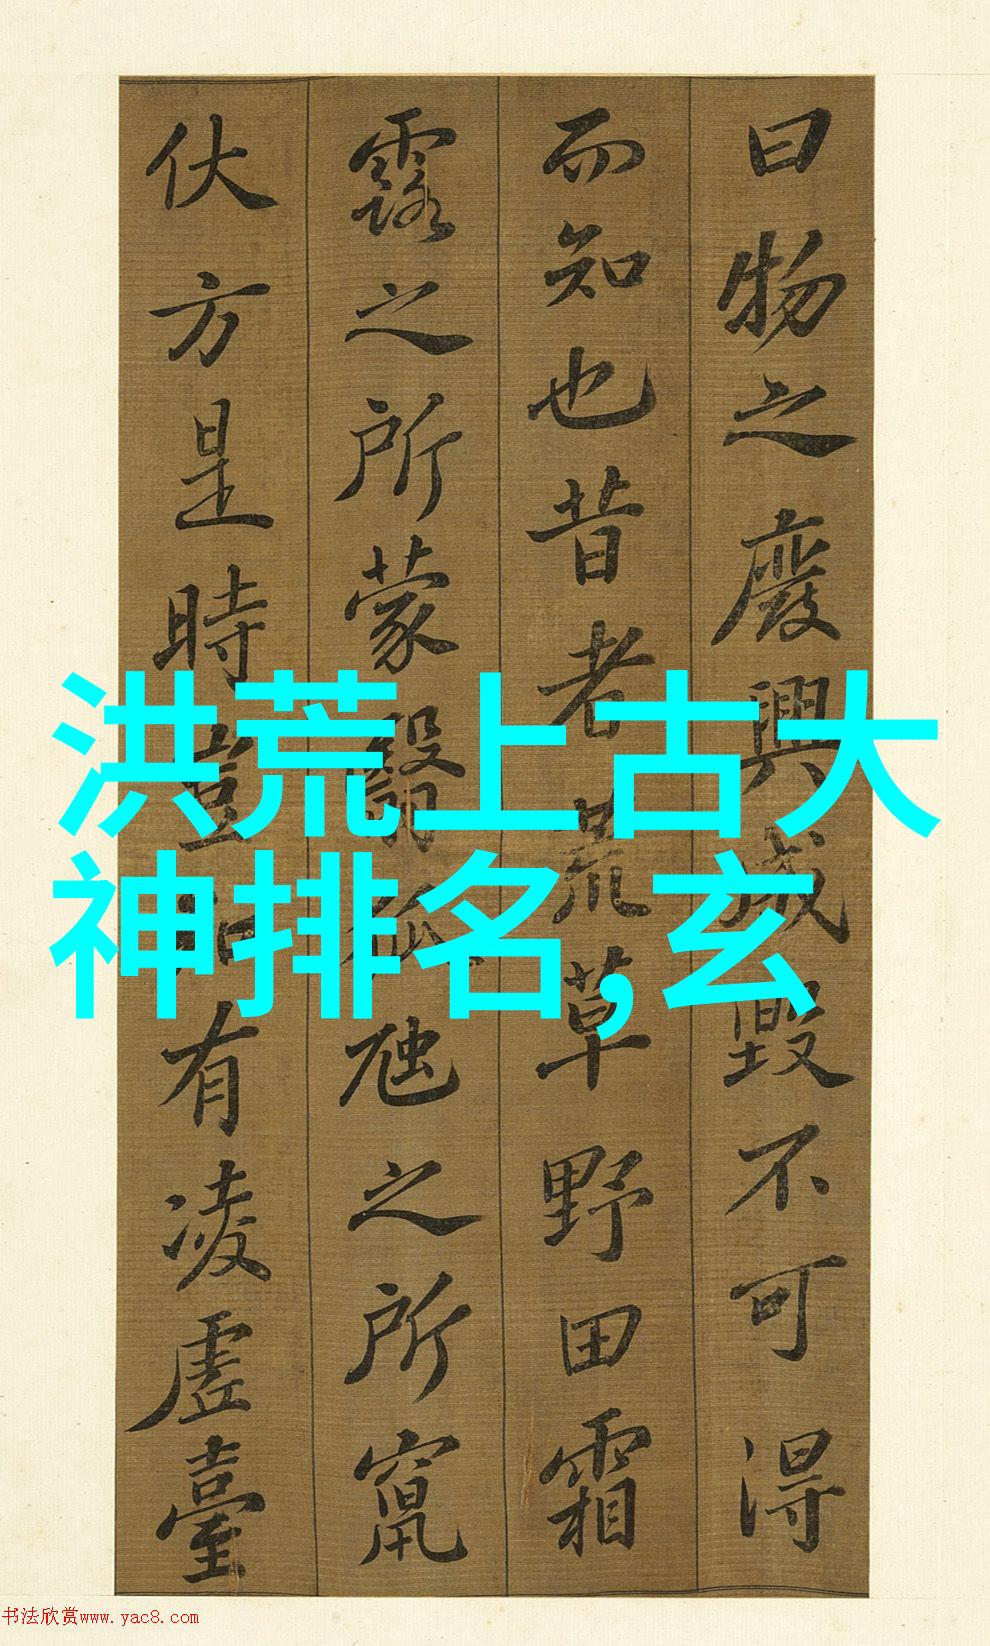 曰物之廢興成毀不可得
而知也昔者荒草野田霜
露之所蒙翳狐虺之所竄
伏方是時豈知有凌虛臺
洪荒上古大
神排名,玄
书法欣赏www.yac8.com